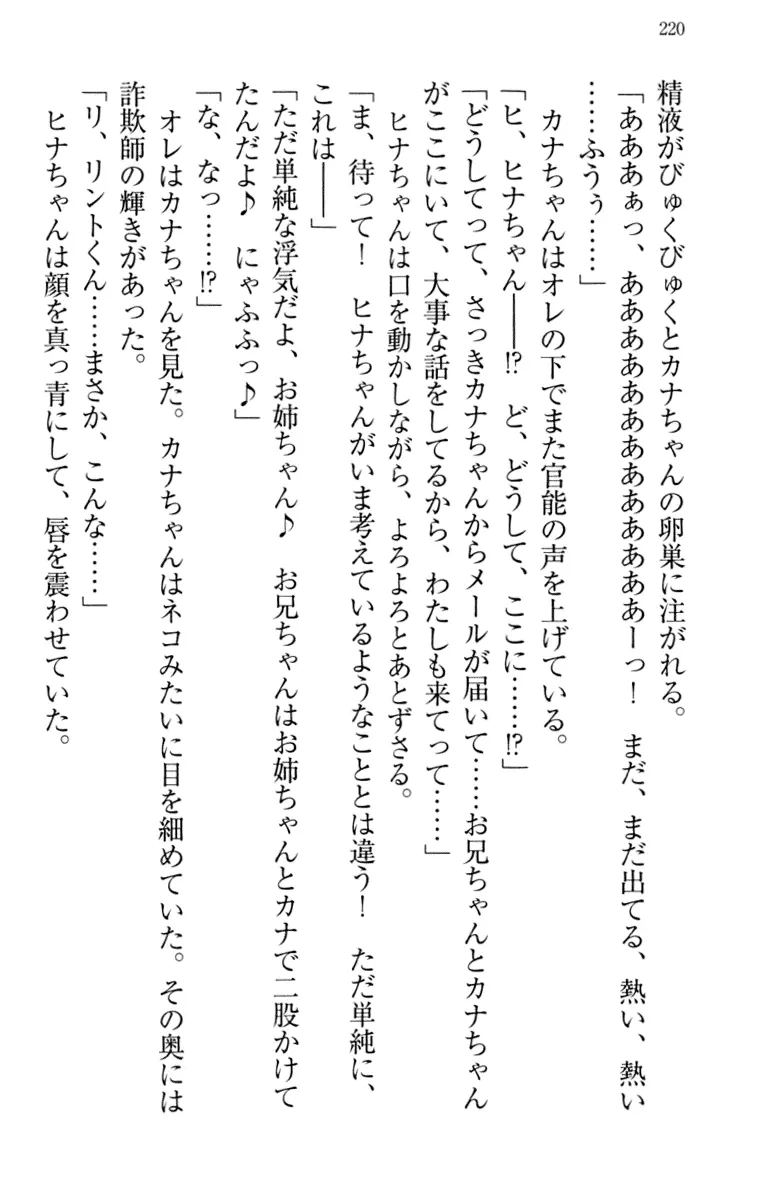 220
精液がびゅくびゅくとカナちゃんの卵巣に注がれる。
「あああぁっ、あああああああああああああーっ！　まだ、まだ出てる、熱い、熱い
……ふうぅ……」
カナちゃんはオレの下でまた官能の声を上げている。
「ヒ、ヒナちゃん――!?　ど、どうして、ここに……!?」
「どうしてって、さっきカナちゃんからメールが届いて……お兄ちゃんとカナちゃん
がここにいて、大事な話をしてるから、わたしも来てって……」
ヒナちゃんは口を動かしながら、よろよろとあとずさる。
「ま、待って！　ヒナちゃんがいま考えているようなこととは違う！　ただ単純に、
これは――」
「ただ単純な浮気だよ、お姉ちゃん♪　お兄ちゃんはお姉ちゃんとカナで二股かけて
たんだよ♪　にゃふふっ♪」
「な、なっ……!?」
オレはカナちゃんを見た。カナちゃんはネコみたいに目を細めていた。その奥には
詐欺師の輝きがあった。
「リ、リントくん……まさか、こんな……」
ヒナちゃんは顔を真っ青にして、唇を震わせていた。